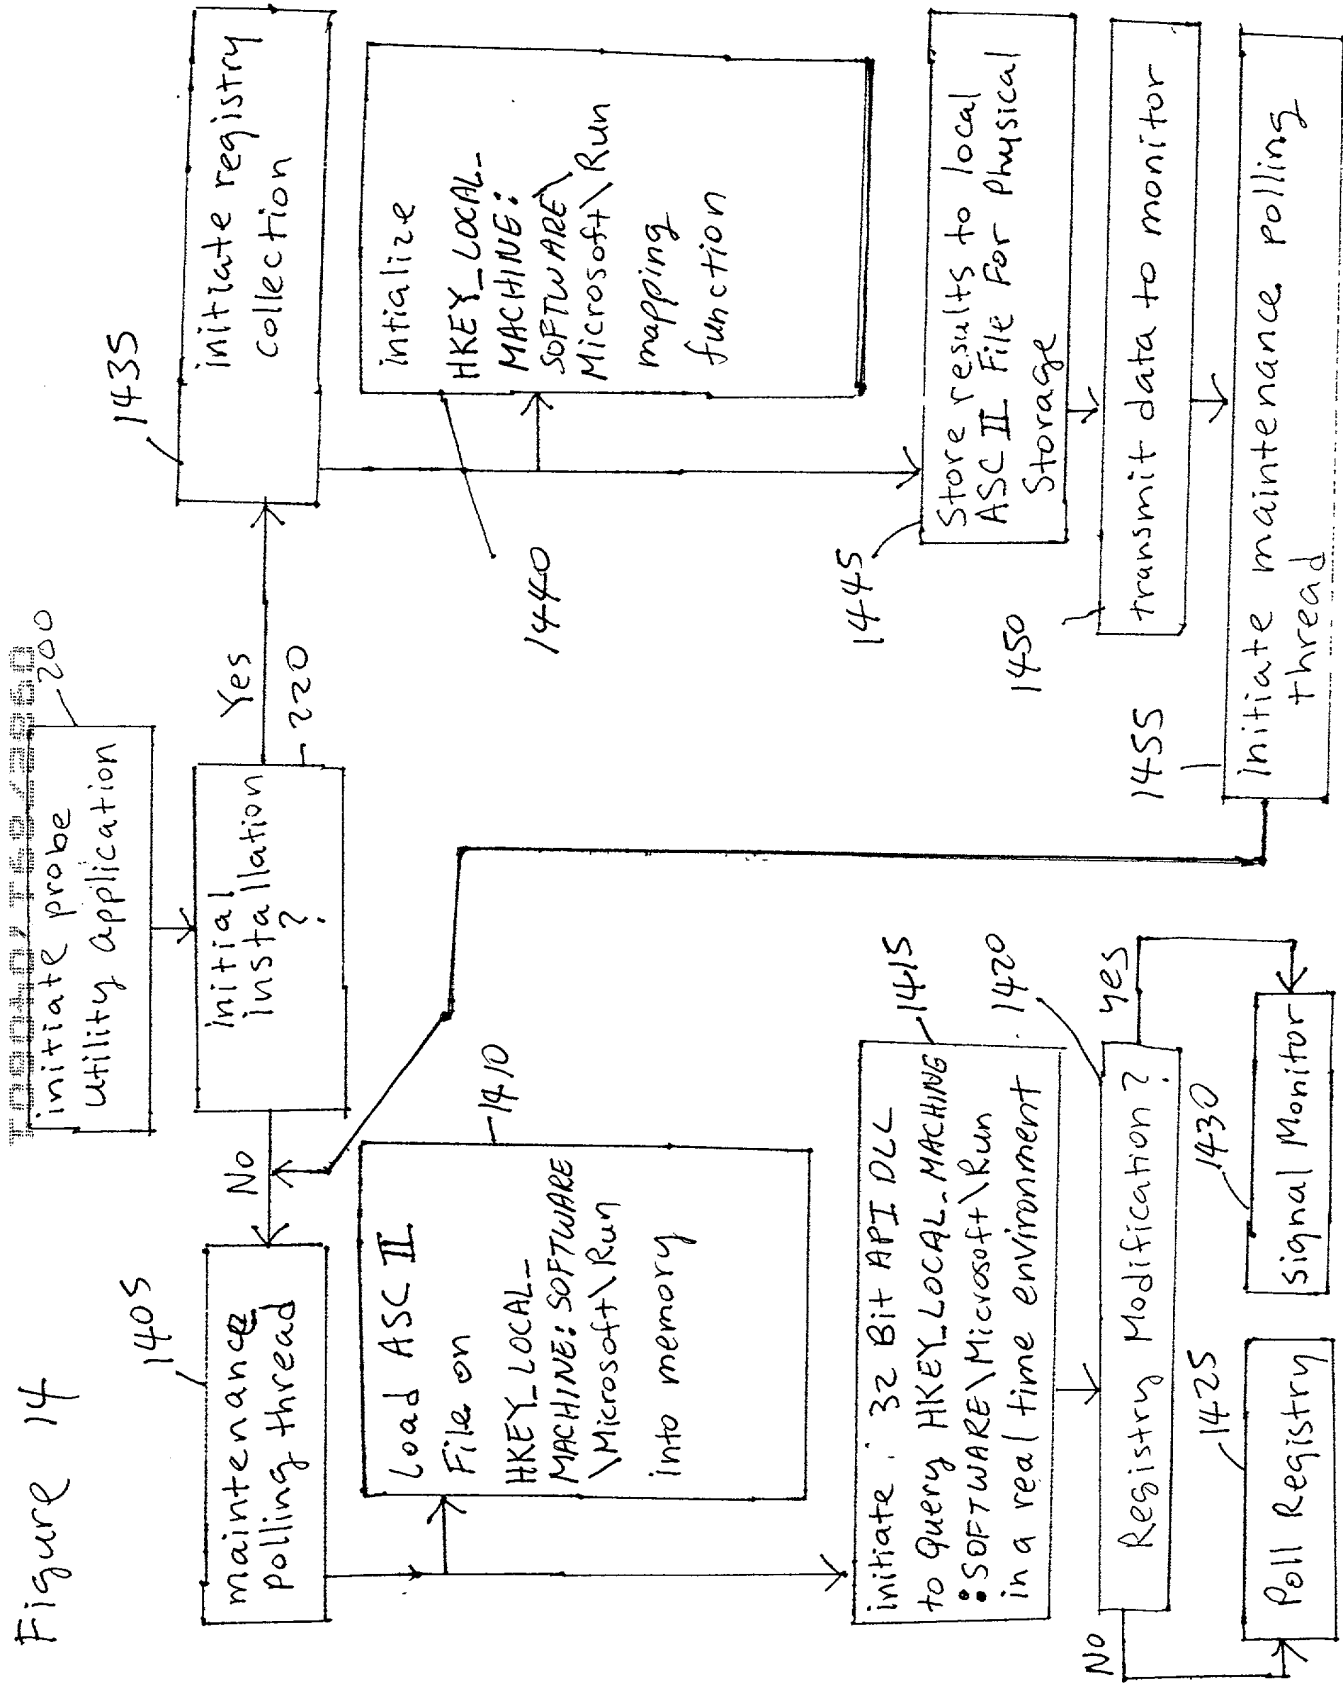 Figure 14
initiate probe
utility application
200
initial
installation
?
220
No
Yes
maintenance
polling thread
1405
Load ASC II
File on
HKEY_LOCAL_
MACHINE: SOFTWARE
\Microsoft\Run
into memory
1410
initiate. 32 Bit API DLL
to Query HKEY_LOCAL_MACHING
:SOFTWARE\Microsoft\Run
in a real time environment
1415
Registry Modification?
1420
No
yes
Poll Registry
1425
signal Monitor
1430
initiate registry
collection
1435
intialize
HKEY_LOCAL_
MACHINE:
SOFTWARE\
Microsoft\Run
mapping
function
1440
Store results to local
ASC II File For Physical
Storage
1445
transmit data to monitor
1450
Initiate maintenance polling
thread
1455